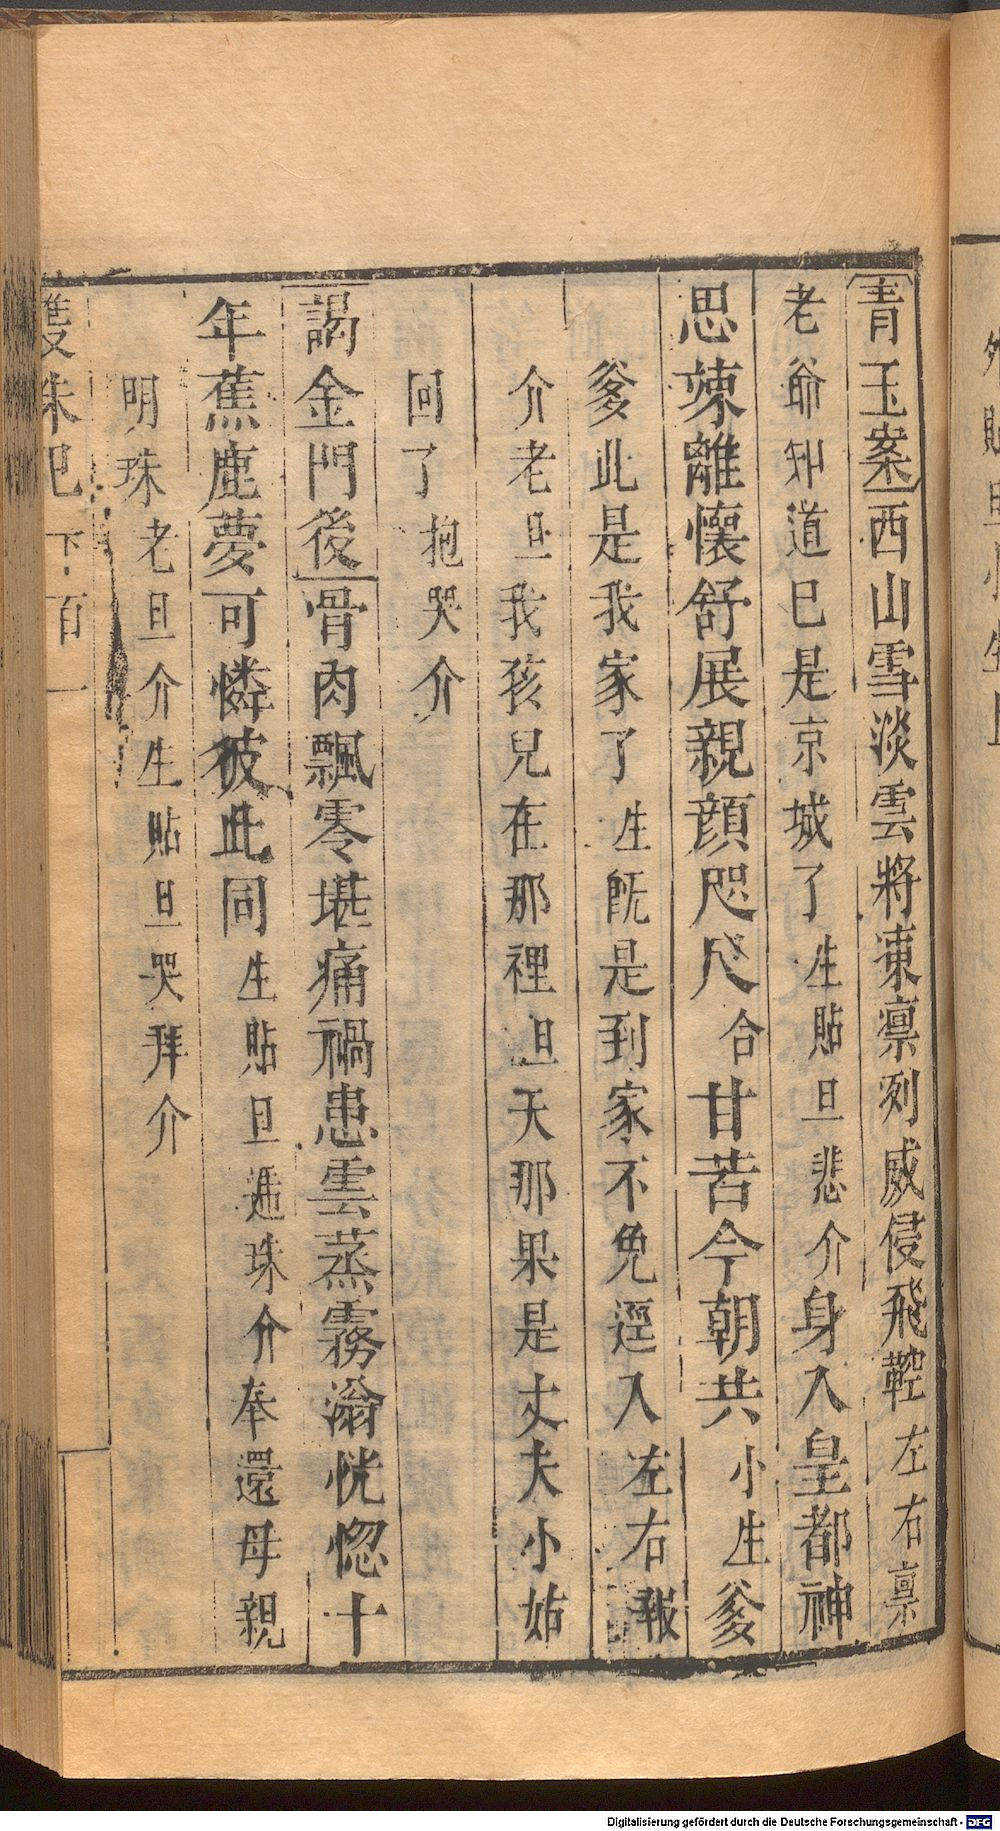 青玉案西山雪淡雲將凍凛冽威侵飛鞚左右禀
老爺知道已是京城了生貼旦悲介身入皇都神
思竦離懷舒展親顔咫尺合甘苦今朝共小生爹
爹此是我家了生旣是到家不免逕入左右報
介老旦我孩兒在那裡旦天那果是丈夫小姑
回了抱哭介
謁金門後骨肉飄零堪痛禍患雲蒸霧滃恍惚十
年蕉鹿夢可憐彼此同生貼旦遞珠介奉還母親
明珠老旦介生貼旦哭拜介
雙珠記 下 百一
Digitalisierung gefördert durch die Deutsche Forschungsgemeinschaft - DFG